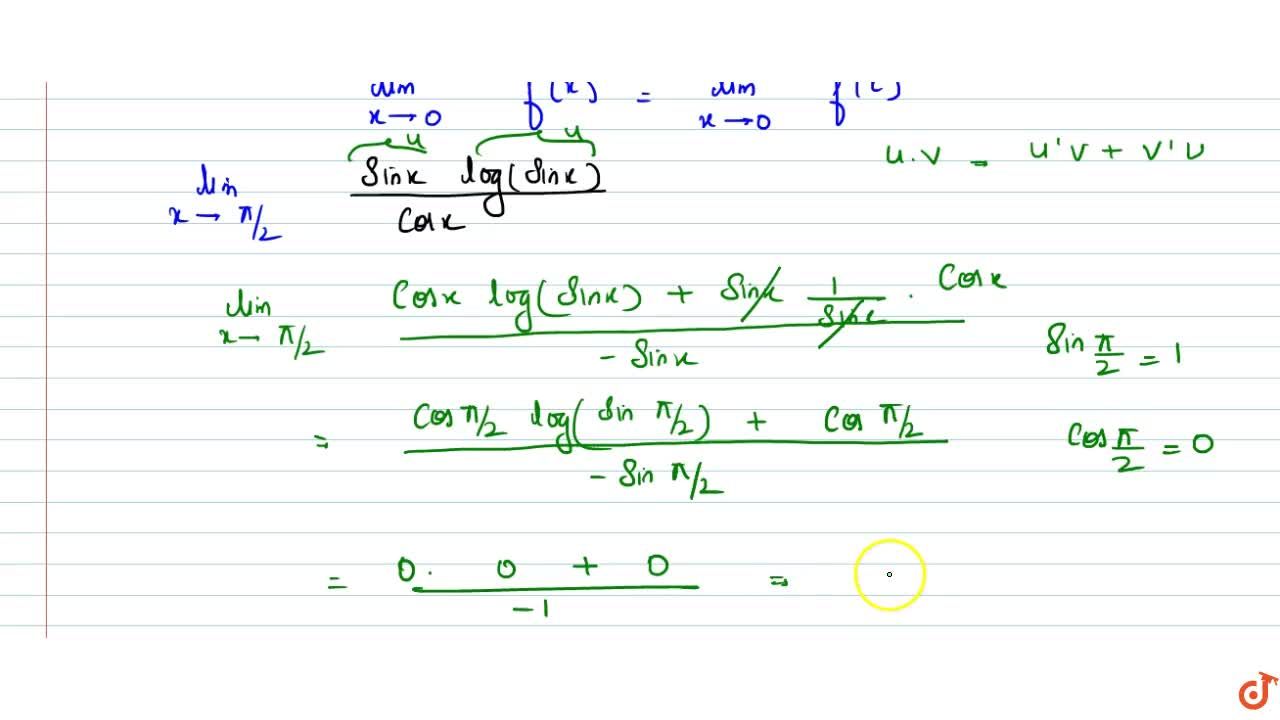 lim x→0 f(x) = lim x→0 f'(c)
u u
lim x→π/2 Sinx log(Sinx) / Cosx
u.v = u'v + v'u
lim x→π/2 Cosx log(Sinx) + Sinx 1/Sinx . Cosx / - Sinx
Sin π/2 = 1
= Cos π/2 log(Sin π/2) + Cos π/2 / - Sin π/2
Cos π/2 = 0
= 0. 0 + 0 / -1 =